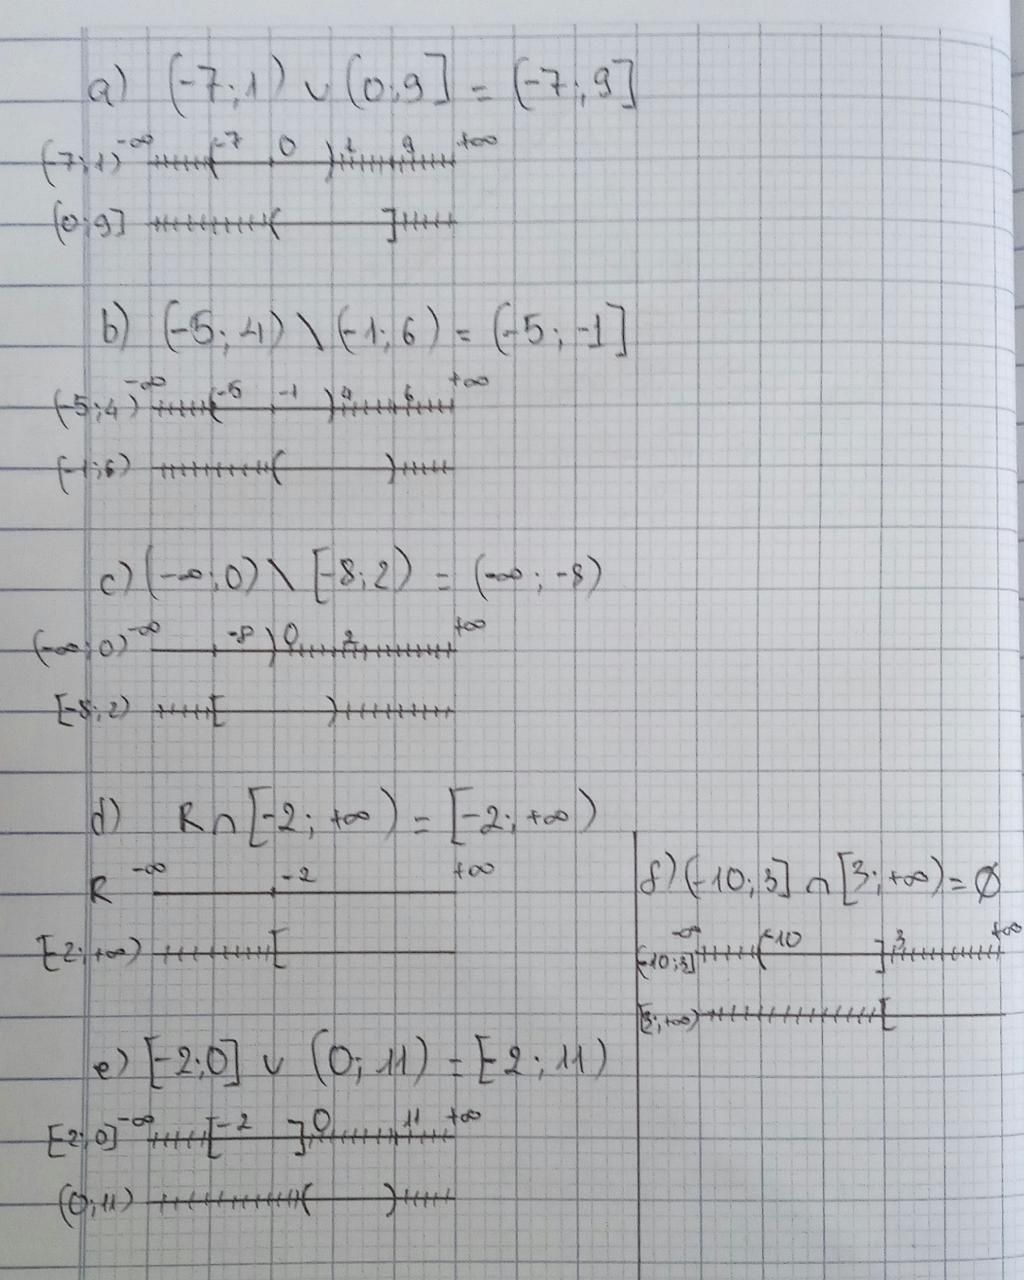 a) (-7;1) ∪ (0;9] = (-7;9]
(-7;1) -∞ -7 0 1 9 +∞
(0;9]
b) (-5;4) \ (-1;6) = (-5;-1]
(-5;4) -∞ -5 -1 4 6 +∞
(-1;6)
c) (-∞;0) \ [-8;2) = (-∞;-8)
(-∞;0) -∞ -8 0 2 +∞
[-8;2)
d) R ∩ [-2; +∞) = [-2; +∞)
R -∞ -2 +∞
[-2; +∞)
e) [-2;0] ∪ (0; 11) = [-2; 11)
[-2;0] -∞ -2 0 11 +∞
(0;11)
f) (-10;3] ∩ [3;+∞) = Ø
(-10;3] -∞ -10 3 +∞
[3;+∞)